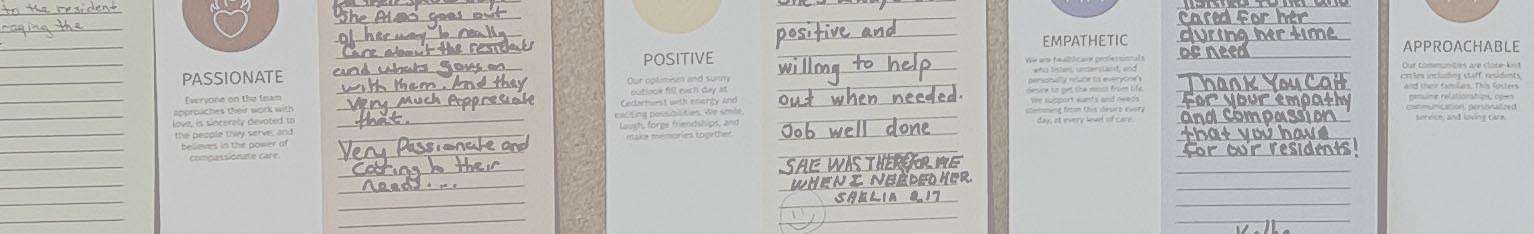 to the resident
raging the
PASSIONATE
Everyone on the team
approaches their work with
love, is sincerely devoted to
the people they serve, and
believes in the power of
compassionate care.
She Also goes out
of her way to really
Care about the residents
and whats goes on
with them. And they
Very Much Appresiate
that.
Very Passionate and
Caring to their
needs....
POSITIVE
Our optimism and sunny
outlook fill each day at
Cedarhurst with energy and
exciting possibilities. We smile,
laugh, forge friendships, and
make memories together.
positive and
willing to help
out when needed.
Job well done
SHE WAS THERE FOR ME
WHEN I NEEDED HER.
EMPATHETIC
We are healthcare professionals
who listen, understand, and
personally relate to everyone's
desire to get the most from life.
We support wants and needs
stemming from this desire every
day, at every level of care.
cared for her
during her time
of need
Thank You Catt
for your empathy
and compassion
that you have
for our residents!
APPROACHABLE
Our communities are close-knit
circles including staff, residents,
and their families. This fosters
genuine relationships, open
communication, personalized
service, and loving care.